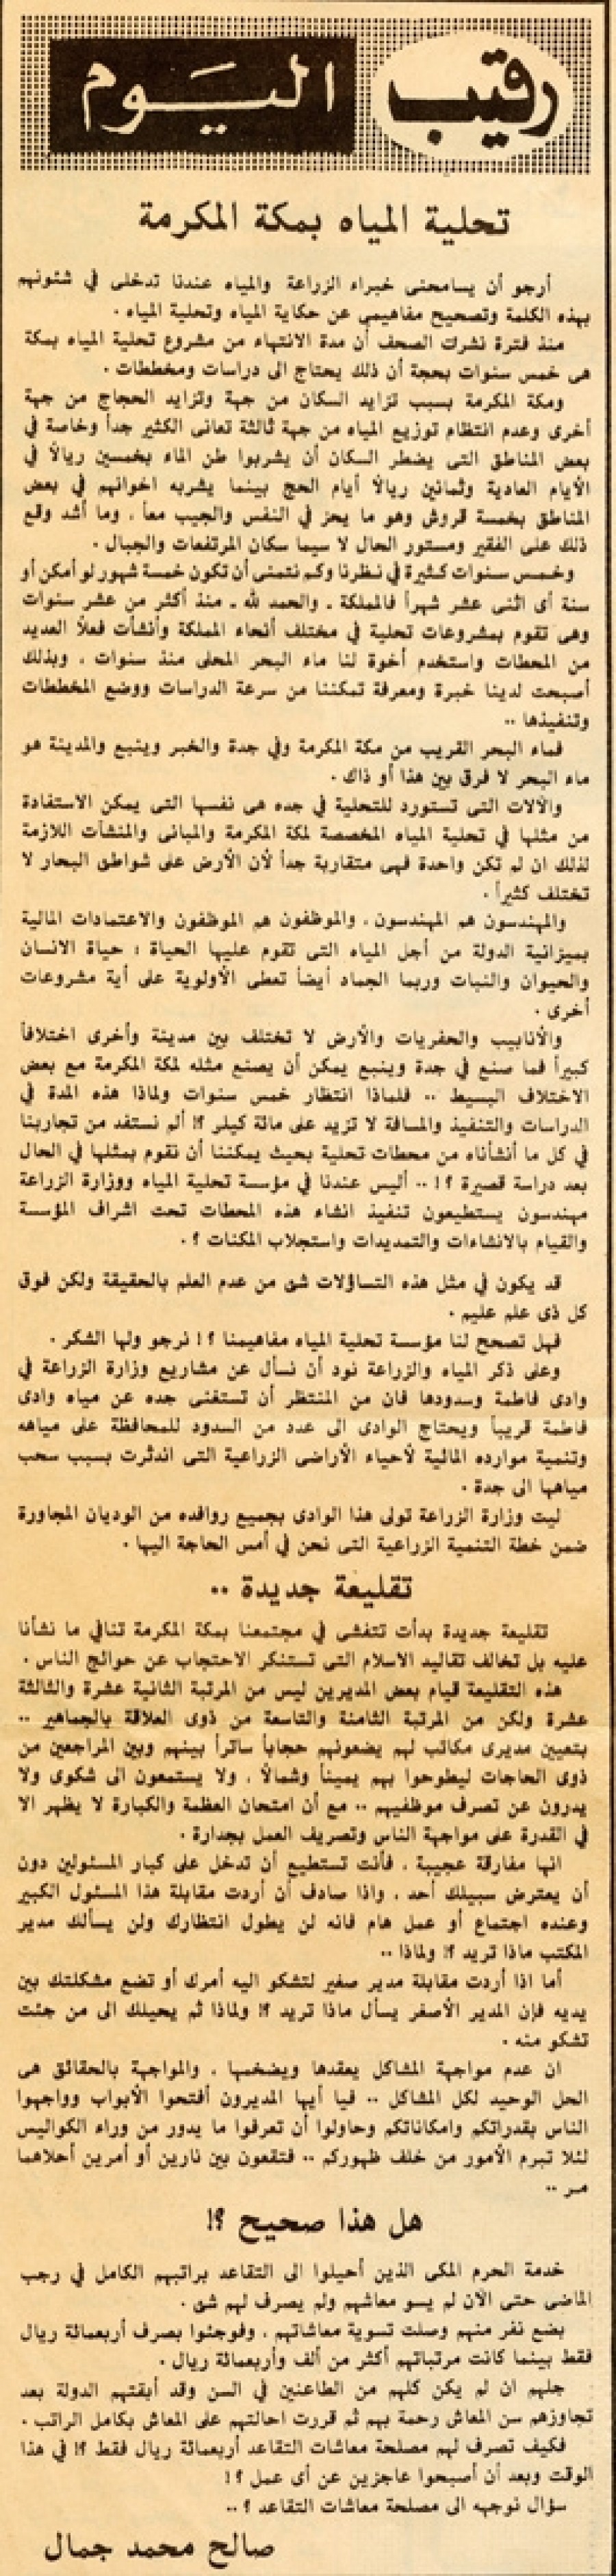 رقيب اليوم
تحلية المياه بمكة المكرمة
أرجو أن يسامحنى خبراء الزراعة والمياه عندنا تدخلى في شئونهم
بهذه الكلمة وتصحيح مفاهيمى عن حكاية المياه وتحلية المياه .
منذ فترة نشرت الصحف أن مدة الانتهاء من مشروع تحلية المياه بمكة
هى خمس سنوات بحجة أن ذلك يحتاج الى دراسات ومخططات .
ومكة المكرمة بسبب تزايد السكان من جهة وتزايد الحجاج من جهة
أخرى وعدم انتظام توزيع المياه من جهة ثالثة تعانى الكثير جداً وخاصة في
بعض المناطق التى يضطر السكان أن يشربوا طن الماء بخمسين ريالاً في
الأيام العادية وثمانين ريالاً أيام الحج بينما يشربه اخوانهم في بعض
المناطق بخمسة قروش وهو ما يحز في النفس والجيب معاً ، وما أشد وقع
ذلك على الفقير ومستور الحال لا سيما سكان المرتفعات والجبال .
وخمس سنوات كثيرة في نظرنا وكم نتمنى أن تكون خمسة شهور لو أمكن أو
سنة أى اثنى عشر شهراً فالمملكة ـ والحمد لله ـ منذ أكثر من عشر سنوات
وهى تقوم بمشروعات تحلية في مختلف أنحاء المملكة وأنشأت فعلاً العديد
من المحطات واستخدم أخوة لنا ماء البحر المحلى منذ سنوات ، وبذلك
أصبحت لدينا خبرة ومعرفة تمكننا من سرعة الدراسات ووضع المخططات
وتنفيذها ..
فماء البحر القريب من مكة المكرمة وفي جدة والخبر وينبع والمدينة هو
ماء البحر لا فرق بين هذا أو ذاك .
والآلات التى تستورد للتحلية في جده هى نفسها التى يمكن الاستفادة
من مثلها في تحلية المياه المخصصة لمكة المكرمة والمبانى والمنشآت اللازمة
لذلك ان لم تكن واحدة فهى متقاربة جداً لأن الأرض على شواطئ البحار لا
تختلف كثيراً .
والمهندسون هم المهندسون ، والموظفون هم الموظفون والاعتمادات المالية
بميزانية الدولة من أجل المياه التى تقوم عليها الحياة : حياة الانسان
والحيوان والنبات وربما الجماد أيضاً تعطى الأولوية على أية مشروعات
أخرى .
والأنابيب والحفريات والأرض لا تختلف بين مدينة وأخرى اختلافاً
كبيراً فما صنع في جدة وينبع يمكن أن يصنع مثله لمكة المكرمة مع بعض
الاختلاف البسيط .. فلماذا انتظار خمس سنوات ولماذا هذه المدة في
الدراسات والتنفيذ والمسافة لا تزيد على مائة كيلر ؟! ألم نستفد من تجاربنا
في كل ما أنشأناه من محطات تحلية بحيث يمكننا أن نقوم بمثلها في الحال
بعد دراسة قصيرة ؟! .. أليس عندنا في مؤسسة تحلية المياه ووزارة الزراعة
مهندسون يستطيعون تنفيذ انشاء هذه المحطات تحت اشراف المؤسسة
والقيام بالانشاءات والتمديدات واستجلاب المكنات ؟ .
قد يكون في مثل هذه التساؤلات شئ من عدم العلم بالحقيقة ولكن فوق
كل ذى علم عليم .
فهل تصحح لنا مؤسسة تحلية المياه مفاهيمنا ؟! نرجو ولها الشكر .
وعلى ذكر المياه والزراعة نود أن نسأل عن مشاريع وزارة الزراعة في
وادى فاطمة وسدودها فان من المنتظر أن تستغنى جده عن مياه وادى
فاطمة قريباً ويحتاج الوادى الى عدد من السدود للمحافظة على مياهه
وتنمية موارده المالية لأحياء الأراضى الزراعية التى اندثرت بسبب سحب
مياهها الى جدة .
ليت وزارة الزراعة تولى هذا الوادى بجميع روافده من الوديان المجاورة
ضمن خطة التنمية الزراعية التى نحن في أمس الحاجة اليها .
تقليعة جديدة ..
تقليعة جديدة بدأت تتفشى في مجتمعنا بمكة المكرمة تنافي ما نشأنا
عليه بل تخالف تقاليد الاسلام التى تستنكر الاحتجاب عن حوائج الناس .
هذه التقليعة قيام بعض المديرين ليس من المرتبة الثانية عشرة والثالثة
عشرة ولكن من المرتبة الثامنة والتاسعة من ذوى العلاقة بالجماهير ..
بتعيين مديرى مكاتب لهم يضعونهم حجاباً ساتراً بينهم وبين المراجعين من
ذوى الحاجات ليطوحوا بهم يميناً وشمالاً ، ولا يستمعون الى شكوى ولا
يدرون عن تصرف موظفيهم .. مع أن امتحان العظمة والكبارة لا يظهر الا
في القدرة على مواجهة الناس وتصريف العمل بجدارة .
انها مفارقة عجيبة ، فأنت تستطيع أن تدخل على كبار المسئولين دون
أن يعترض سبيلك أحد ، واذا صادف أن أردت مقابلة هذا المسئول الكبير
وعنده اجتماع أو عمل هام فانه لن يطول انتظارك ولن يسألك مدير
المكتب ماذا تريد ؟! ولماذا ..
أما اذا أردت مقابلة مدير صغير لتشكو اليه أمرك أو تضع مشكلتك بين
يديه فإن المدير الأصغر يسأل ماذا تريد ؟! ولماذا ثم يحيلك الى من جئت
تشكو منه .
ان عدم مواجهة المشاكل يعقدها ويضخمها ، والمواجهة بالحقائق هى
الحل الوحيد لكل المشاكل .. فيا أيها المديرون أفتحوا الأبواب وواجهوا
الناس بقدراتكم وامكاناتكم وحاولوا أن تعرفوا ما يدور من وراء الكواليس
لئلا تبرم الأمور من خلف ظهوركم .. فتقعون بين نارين أو أمرين أحلاهما
مر ..
هل هذا صحيح ؟!
خدمة الحرم المكى الذين أحيلوا الى التقاعد براتبهم الكامل في رجب
الماضى حتى الآن لم يسو معاشهم ولم يصرف لهم شئ .
بضع نفر منهم وصلت تسوية معاشاتهم ، وفوجئوا بصرف أربعمائة ريال
فقط بينما كانت مرتباتهم أكثر من ألف وأربعمائة ريال .
جلهم ان لم يكن كلهم من الطاعنين في السن وقد أبقتهم الدولة بعد
تجاوزهم سن المعاش رحمة بهم ثم قررت احالتهم على المعاش بكامل الراتب .
فكيف تصرف لهم مصلحة معاشات التقاعد أربعمائة ريال فقط ؟! في هذا
الوقت وبعد أن أصبحوا عاجزين عن أى عمل ؟!
سؤال نوجهه الى مصلحة معاشات التقاعد ؟ ..
صالح محمد جمال